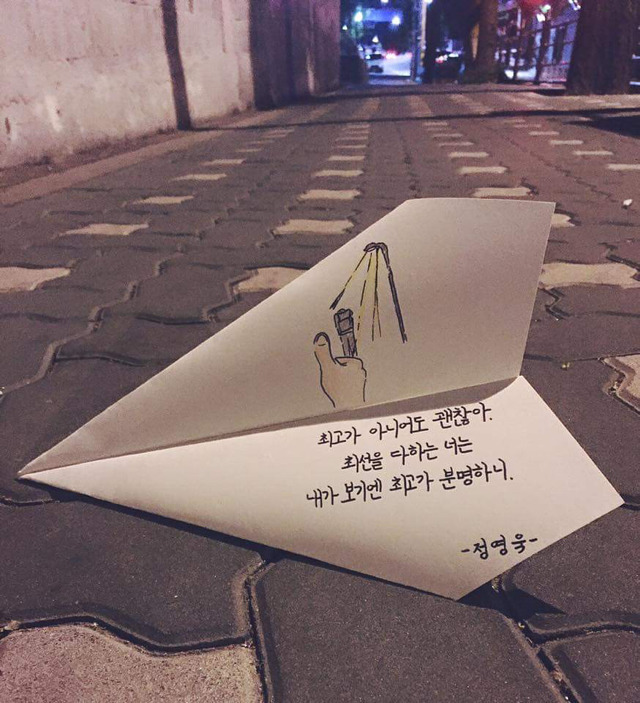 최고가 아니어도 괜찮아.
최선을 다하는 너는
내가 보기엔 최고가 분명하니.
-정영욱-